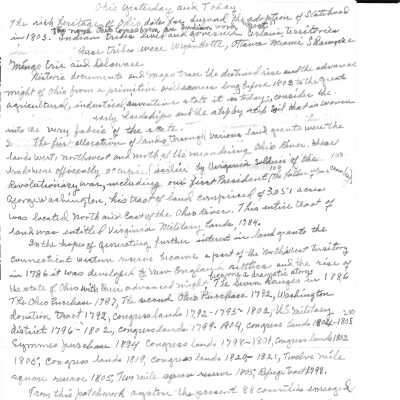 Ohio Yesterday and Today
The rich heritage of Ohio dates far beyond the adoption of Statehood
in 1803. Indian tribes lived and governed certain territories
These tribes were Wyandotte, Ottawa Miami Shawnee
Mingo Erie and Delaware
Historic documents and maps trace the destined rise and the advance
might of Ohio from a primitive wilderness long before 1803 to the great
agricultural, industrial, inventive state it is today; consider the
early hardships and the step by step toil that is woven
into the very fabric of the state.
The first allocation of lands through various land grants were the
lands west, northwest and north of the meandering Ohio River. These
lands were officially occupied earlier by Virginia soldiers of the
Revolutionary war, including our first President (the father of our Country)
George Washington, his tract of land comprised of 3051 acres
was located North and East of the Ohio River. This entire tract of
land was entitled Virginia Military Lands, 1784.
In the hopes of generating further interest in land grants the
Connecticut western reserve became a part of the Northwest Territory
in 1786 it was developed by New England settlers and the rise of
the state of Ohio with their advanced might. The Seven Ranges in 1786
The Ohio Purchase 1787, The second Ohio Purchase 1792, Washington
donation tract 1792, Congress lands 1792-1795-1802, U.S. Military
district 1796-1802, Congress lands 1799-1804, Congress lands 1805
Symmes purchase 1794 Congress lands 1798-1801, Congress lands 1802
1805, Congress lands 1819, Congress lands 1820-1821, Twelve mile
square reserve 1805, Two mile square reserve 1805, Refugee tract 1798.
From this patchwork system the present 88 counties emerged